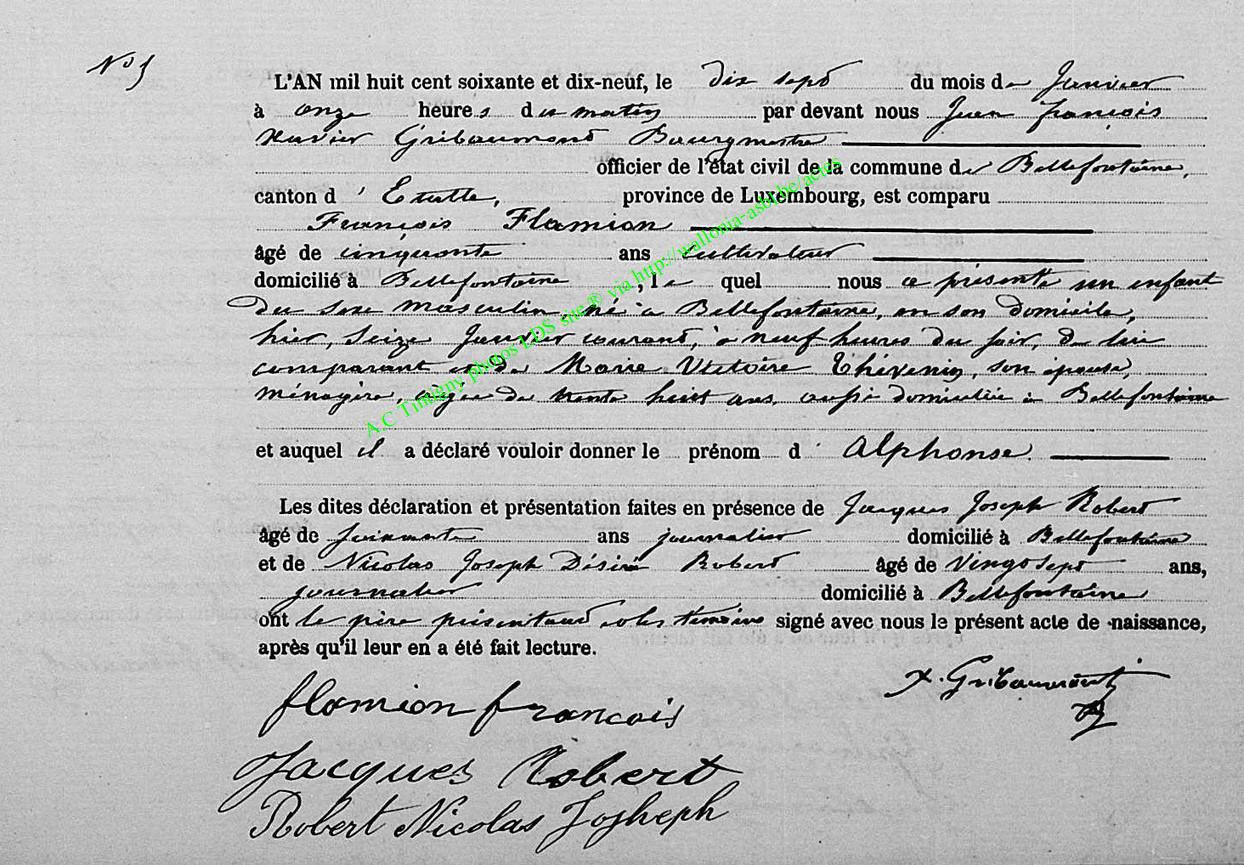 No 5
L'AN mil huit cent soixante et dix-neuf, le dix sept du mois de Janvier
à onze heures du matin par devant nous Jean François
Xavier Gribaumont Bourgmestre
officier de l'état civil de la commune de Bellefontaine,
canton d'Etalle, province de Luxembourg, est comparu
François Flamion
âgé de cinquante ans cultivateur
domicilié à Bellefontaine, le quel nous a présenté un enfant
du sexe masculin, né à Bellefontaine, en son domicile,
hier, seize Janvier courant, à neuf heures du soir, de lui
comparant et de Marie Victoire Thévenin, son épouse,
ménagère, âgée de trente huit ans, aussi domiciliée à Bellefontaine
et auquel il a déclaré vouloir donner le prénom d'Alphonse.
Les dites déclaration et présentation faites en présence de Jacques Joseph Robert
âgé de soixante ans journalier domicilié à Bellefontaine
et de Nicolas Joseph Désiré Robert âgé de vingt sept ans,
journalier domicilié à Bellefontaine
ont le père présentant et les témoins signé avec nous le présent acte de naissance,
après qu'il leur en a été fait lecture.
X. Gribaumont
flamion francois
Jacques Robert
Robert Nicolas Josheph
A.C Tintigny photos LDS site ® via http://wallonia-asbl.be/actes